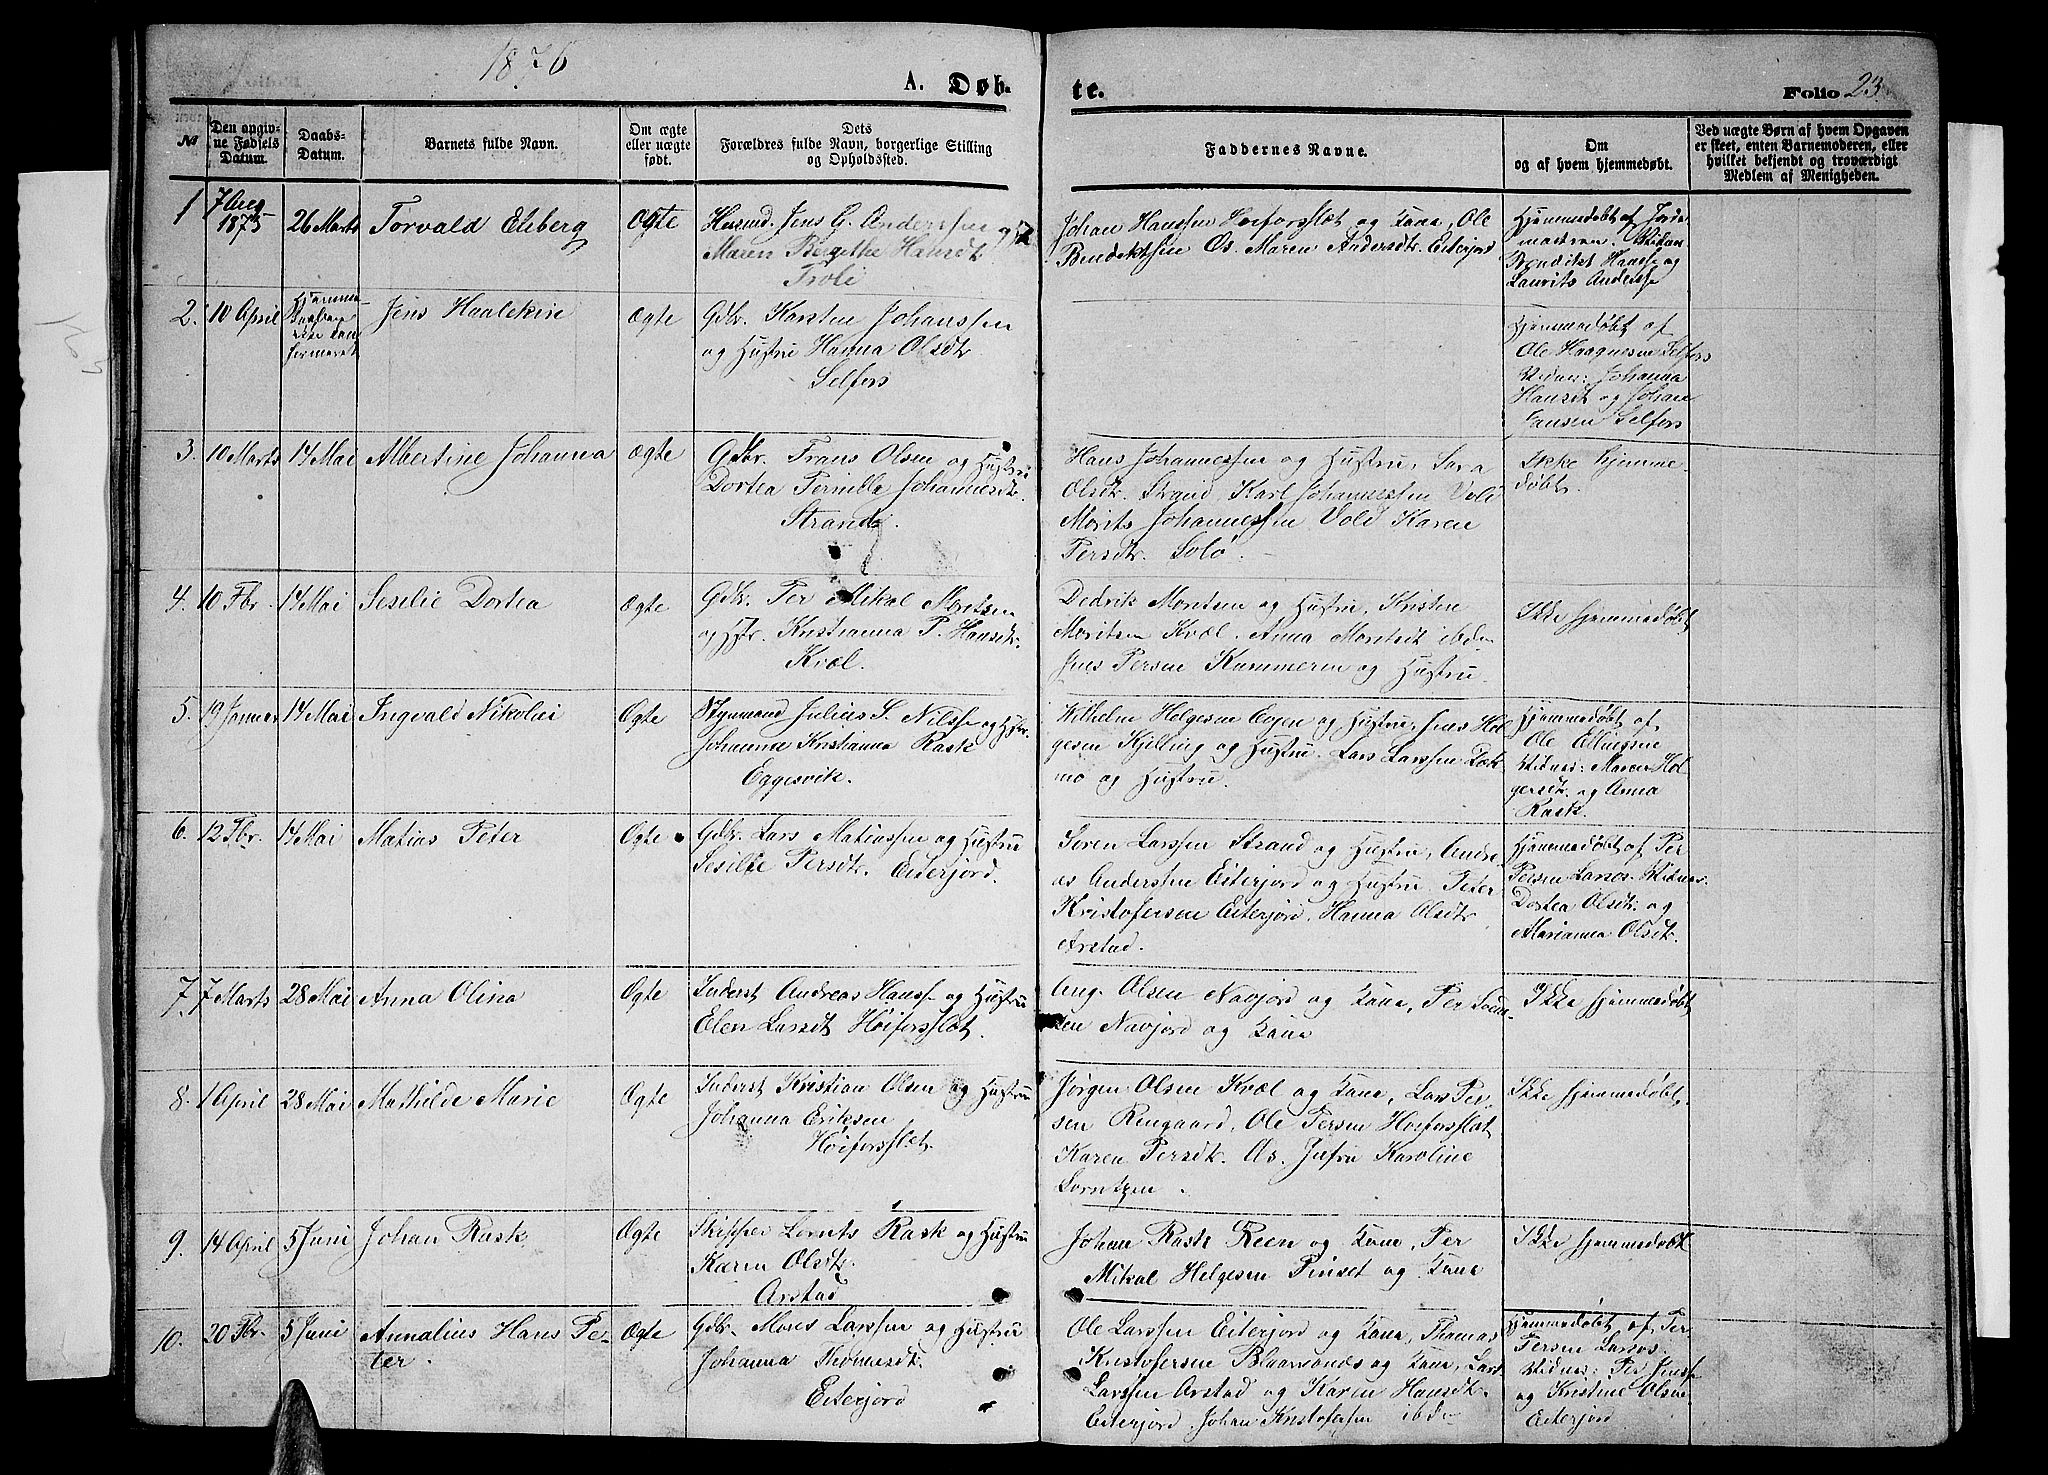 1876
A. Døb-
te.
Folio 23
№
Den angiv-
ne Fødsels
Datum.
Daabs-
Datum.
Barnets fulde Navn.
Om ægte
eller uægte
født.
Dets
Forældres fulde Navn, borgerlige Stilling
og Opholdssted.
Faddernes Navne.
Om
og af hvem hjemmedøbt.
Ved uægte Børn af hvem Opgaven
er skeet, enten Barnemoderen, eller
hvilket bekjendt og troværdigt
Medlem af Menigheden.
1
1875
26 Marts
Torvald Elsberg
Ægte
Husmd. Jens G. Anderssen og
Maren Bergithe Hansdt
Troli
Johan Hanssen Høiforsslæt og Kone, Ole
Bendiktsen Os. Maren Andersdtr. Eiterjord
Hjemmedøbt af Jorde-
moderen. Vidner
Bendikt Hansse og
Laurits Anderse
2.
10 April
Hjemme-
ikke kon-
firmeret
Jens Haalekin
Ægte
Gdbr. Karsten Johanssen
og Hustru Hanna Olsdtr
Selfors
Hjemmedøbt af
Ole Haagnesen Selfors
Vidner: Johanna
Hansdt og Johan
Jansen Selfors
3.
10 Marts
14 Mai
Albertine Johanna
Ægte
Gdbr. Frans Olsen og Hustru
Dortea Pernilla Johannesdtr.
Strand.
Hans Johannessen og Hustru, Sara
Olsdtr. Strand, Karl Johannessen Vold
Morits Johannessen Vold Karen
Persdtr. Solø.
Ikke hjemme
døbt.
4.
10 Fbr.
14 Mai
Seselie Dortea
Ægte
Gdbr. Per Mikal Moritsen
og Hstr. Kristianna P. Hansdtr.
Kvæl.
Dedrik Moritsen og Hustru, Kristen
Moritsen Kvæl. Anna Moritsdt ibden
Jens Persen Kammeren og Hustru.
Ikke hjemmedøbt
5.
19 Januar
14 Mai
Ingvald Nikolai
Ægte
Styrmand Julius S. Nilsse og Hstr.
Johanna Kristianna Rask
Eggesvik.
Vilhelm Holgesen Evjen og Hustru, Jens Hol-
gesen Kjelling og Hustru. Lars Larssen Døk-
mo og Hustru.
Hjemmedøbt af
Ole Ellingsen
Vidner: Maren Hol-
gersdtr. og Anna
Rask.
6.
12 Fbr.
14 Mai
Matias Peter
Ægte
Gdbr. Lars Matiassen og Hustru
Sesilie Persdtr. Eiterjord.
Søren Larssen Strand og Hustru, Andre-
as Anderssen Eiterjord og Hustru. Peter
Kristofersen Eiterjord, Hanna Olsdtr
Arstad.
Hjemmedøbt af Per
Persen Larsos. Vidner
Dortea Olsdtr. og
Marianna Olsdtr.
7.
7 Marts
28 Mai
Anna Olina
Ægte
Inderst Andreas Hansse og Hustru
Elen Larsdt Høiforsslæt.
Aug. Olsen Navjord og Kone, Per
sen Navjord og Kone
Ikke hjemmedøbt
8.
1 April
28 Mai
Mathilde Marie
Ægte
Inderst Kristian Olsen og Hustru
Johanna Eriksen
Høiforsslæt.
Jørgen Olsen Kvæl og Kone, Lars Per-
sen Rengaard, Ole Persen Høiforsslæt
Karen Persdtr. Os. Jufru Karoline
Lorntzen.
Ikke hjemmedøbt.
9.
14 April
5 Juni
Johan Rask
Ægte
Skipper Lornts Rask og Hustru
Karen Olsdtr.
Arstad
Johan Rask Reen og Kone, Per
Mikal Helgesen Prinset og Kone
Ikke hjemmedøbt
10.
20 Fbr.
5 Juni
Annalius Hans Pe-
ter.
Ægte
Gdbr. Moses Larssen og Hustru
Johanna Thomasdt.
Eiterjord
Ole Larssen Eiterjord og Kone, Thomas
Kristofersen Blaamodes og Kone, Lars
Larssen Arstad og Karen Hansdtr.
Eiterjord, Johan Kristofersen ibden
Hjemmedøbt af Per
Persen Larsos.
Vidner: Per Jensse
og Kristine Olsen
Eiterjord